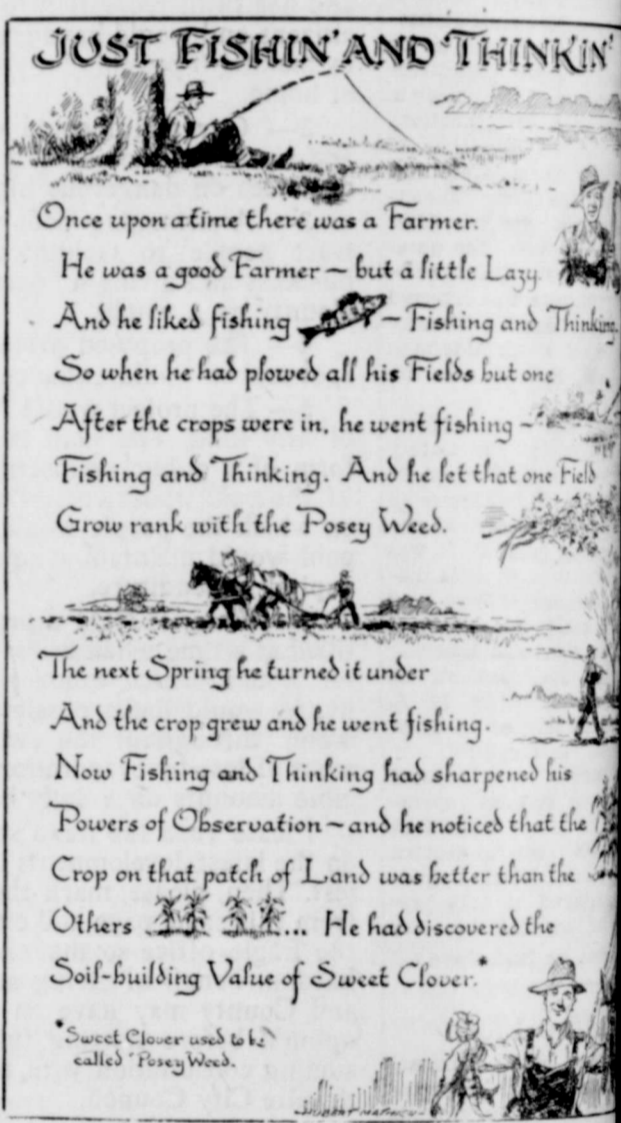 JUST FISHIN' AND THINKIN'
Once upon a time there was a Farmer.
He was a good Farmer — but a little Lazy.
And he liked fishing — Fishing and Thinking.
So when he had plowed all his Fields but one
After the crops were in, he went fishing —
Fishing and Thinking. And he let that one Field
Grow rank with the Posey Weed.
The next Spring he turned it under
And the crop grew and he went fishing.
Now Fishing and Thinking had sharpened his
Powers of Observation — and he noticed that the
Crop on that patch of Land was better than the
Others ... He had discovered the
Soil-building Value of Sweet Clover.*
*Sweet Clover used to be
called "Posey Weed.